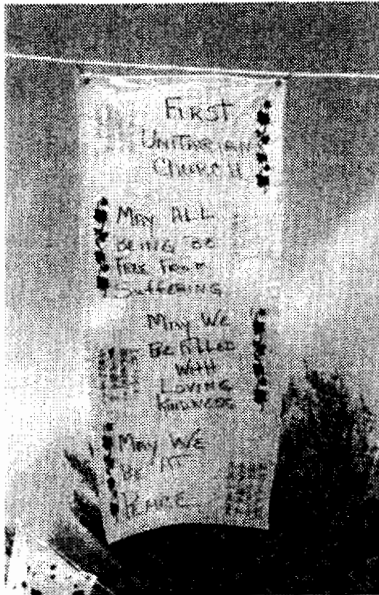 First
Unitarian
Church
May All
Being Be
Free From
Suffering
May We
Be Filled
With
Loving
Kindness
May We
Be At
Peace